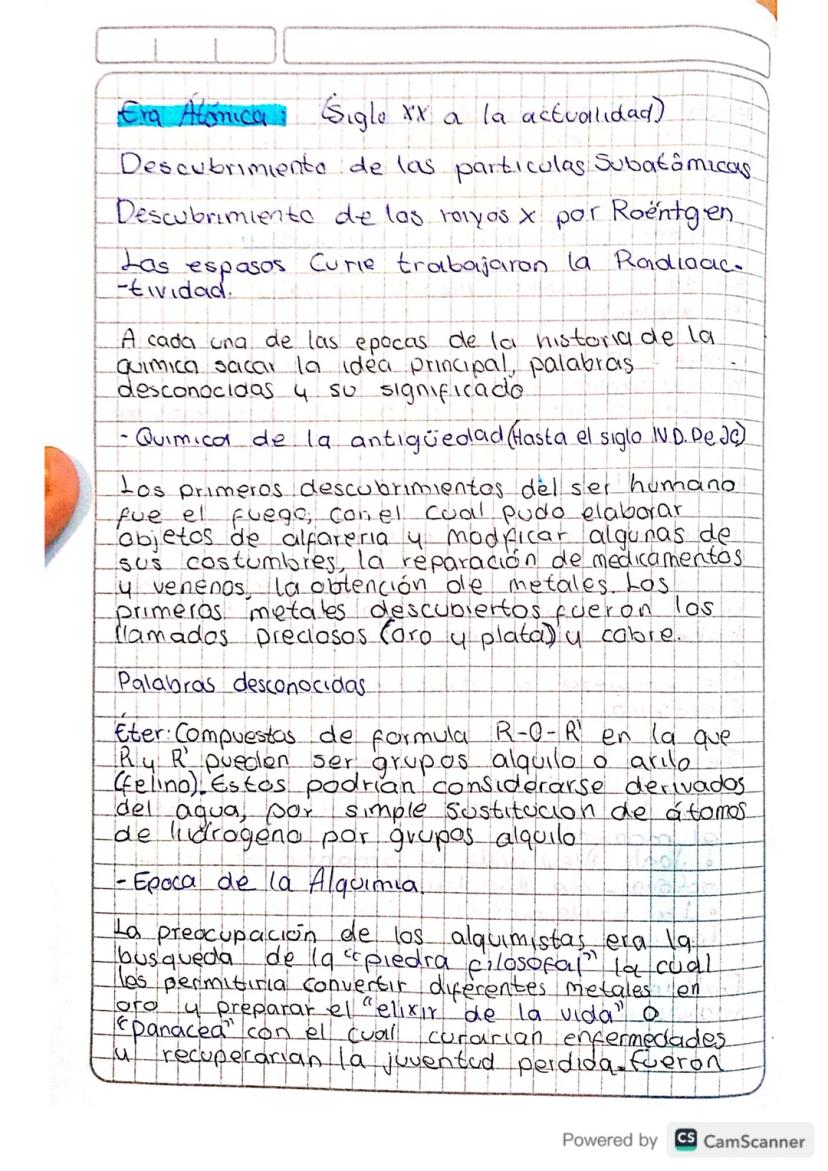 Era Atómica: (Siglo XX a la actualidad)
Descubrimiento de las particulas Subatómicas
Descubrimiento de los rayos x por Roéntgen
Los espasos Curie trabajaron la Radioac-
-tividad.
A cada una de las epocas de la historia de la
quimica sacar la idea principal, palabras
desconocidas y su significado
- Quimica de la antigüedad (Hasta el siglo IV D. De JC)
Los primeros descubrimientos del ser humano
fue el fuego, con el cual pudo elaborar
objetos de alfareria y modficar algunas de
sus costumbres, la reparación de medicamentos
y venenos, la obtención de metales. Los
primeros metales descubiertos fueron los
llamados preciosos (oro y plata) y cobre.
Palabras desconocidas
Éter: Compuestos de formula R-O-R' en la que
R y R' pueden ser grupos alquilo o arilo
(felino). Estos podrian considerarse derivados
del agua, por simple sustitucion de átomos
de hidrogeno por grupos alquilo
- Epoca de la Alquimia.
La preocupación de los alquimistas era la
busqueda de la "piedra filosofal" la cual
les permitiria convertir diferentes metales en
oro y preparar el "elixir de la vida" o
"panacea" con el cual curarian enfermedades
y recuperarian la juventud perdida. fueron
Powered by CS CamScanner